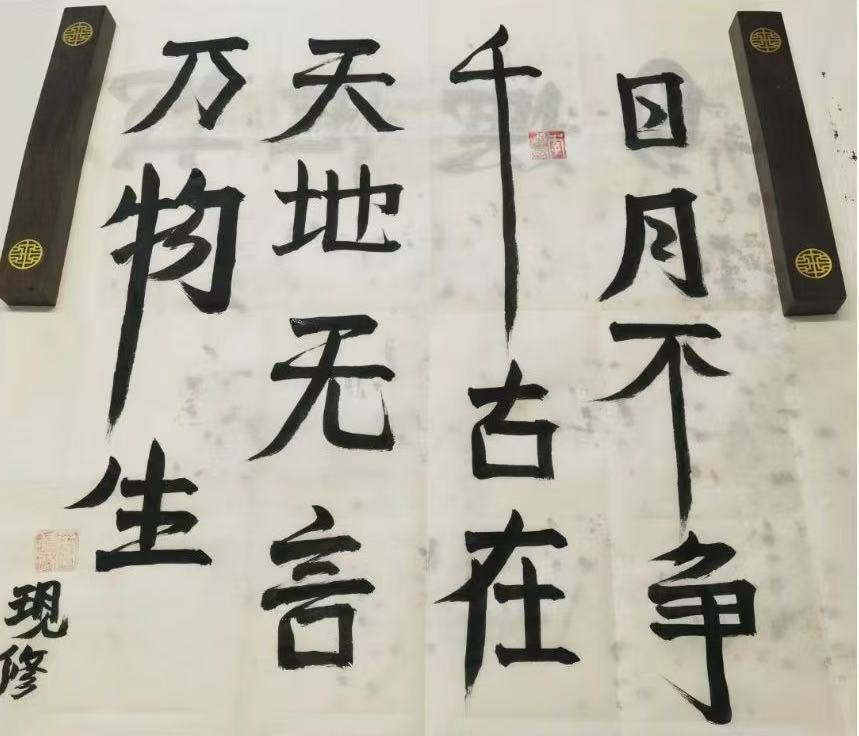 日月不争
千古在
天地无言
万物生
现修